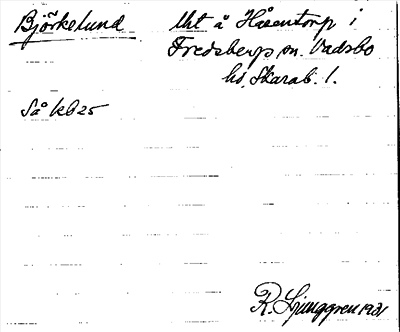 Björkelund
Uht å Håsentorp i
Fredsbergs sn. Vadsbo
hd, Skarab. l.
Så kb 25
R. Ljunggren 1931